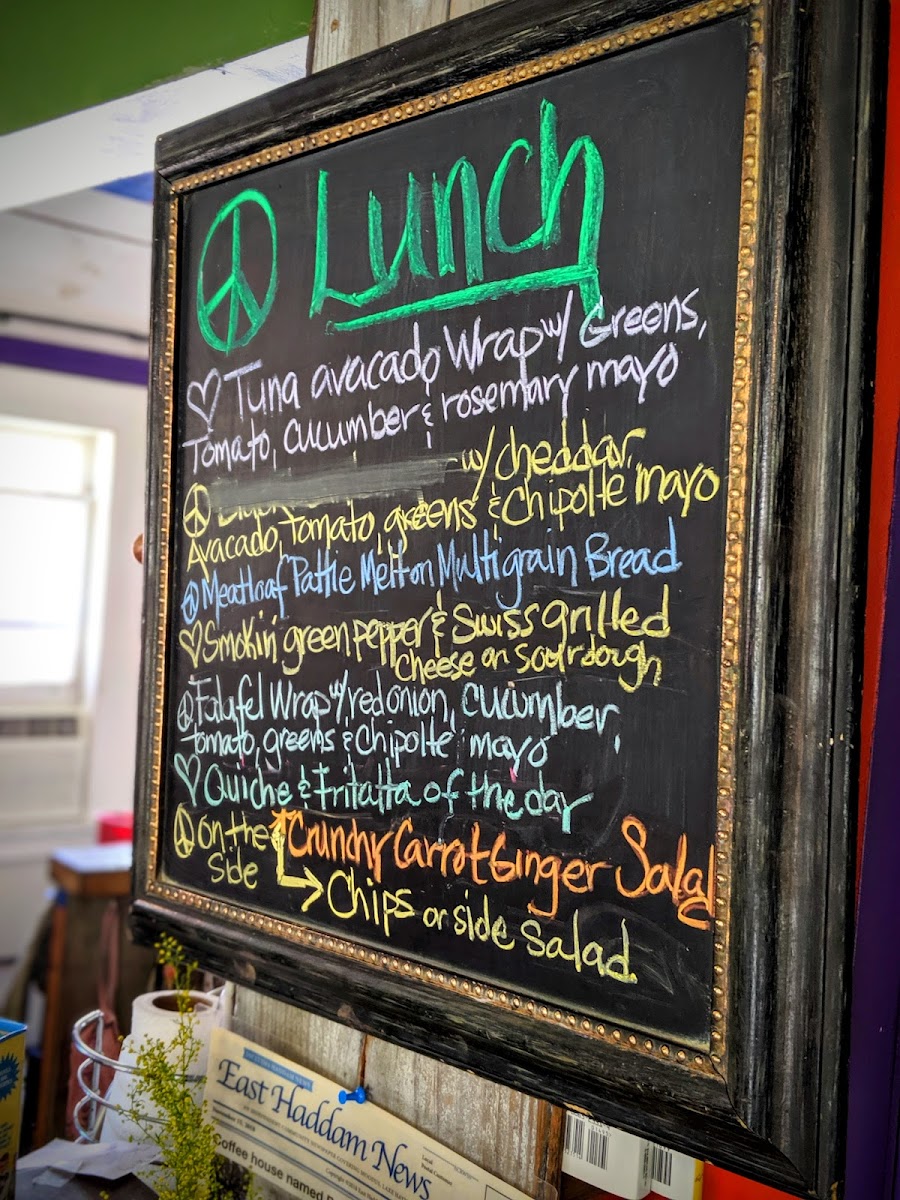 Lunch
Tuna avacado Wrap w/ Greens,
Tomato, cucumber & rosemary mayo
w/ cheddar,
Avacado, tomato, greens & Chipolte mayo
Meatloaf Pattie Melt on Multigrain Bread
Smokin' green pepper & Swiss grilled
Cheese on sourdough
Falafel Wrap w/ red onion, cucumber,
tomato, greens & chipolte mayo
Quiche & Fritatta of the day
on the
Side
Crunchy Carrot Ginger Salad
Chips or side salad
East Haddam News
Coffee house named